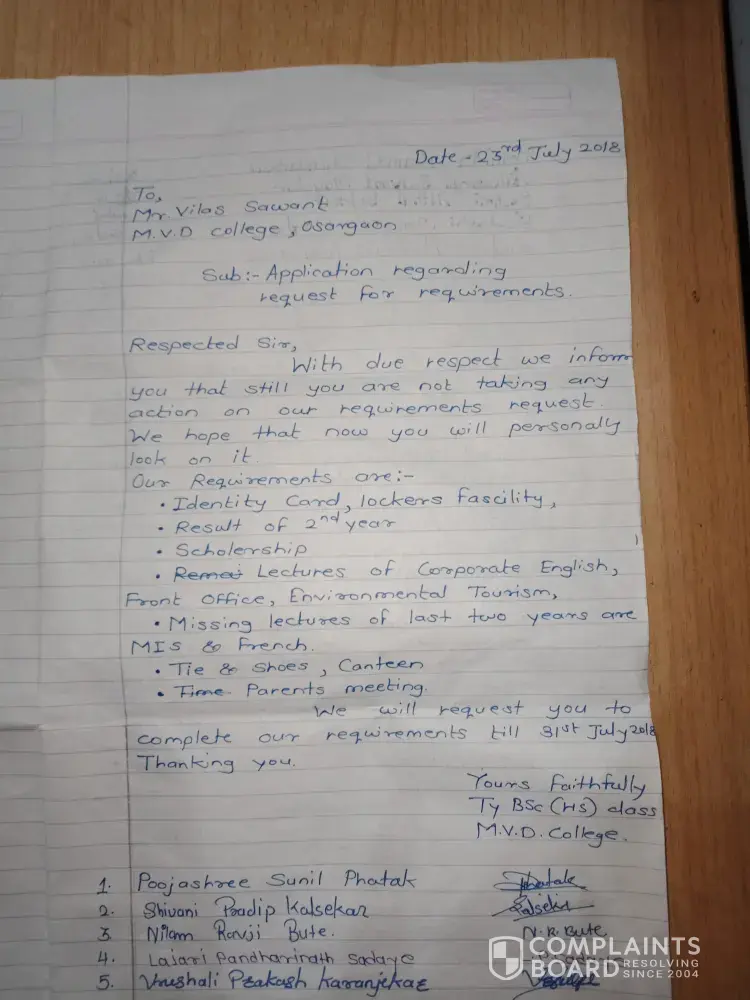 Date - 23rd July 2018
To,
Mr. Vilas Sawant
M.V.D college, Asargaon
Sub:- Application regarding
request for requirements.
Respected Sir,
With due respect we inform
you that still you are not taking any
action on our requirements request.
We hope that now you will personaly
look on it.
Our Requirements are:-
• Identity Card, lockers fascility,
• Result of 2nd year
• Scholership
• Remai Lectures of Corporate English,
Front Office, Environmental Tourism,
• Missing lectures of last two years are
MIS & French.
• Tie & shoes, Canteen
• Time Parents meeting.
We will request you to
complete our requirements till 31st July 2018
Thanking you.
Yours Faithfully
Ty BSc (HS) class
M.V.D. College.
1. Poojashree Sunil Phatak Phatak
2. Shivani Pradip Kalsekar Kalsekar
3. Nilam Ravji Bute. N.R. Bute
4. Lajari Pandharinath Sadaye
5. Vrushali Prakash Karanjekar
COMPLAINTS
BOARD RESOLVING
SINCE 2004